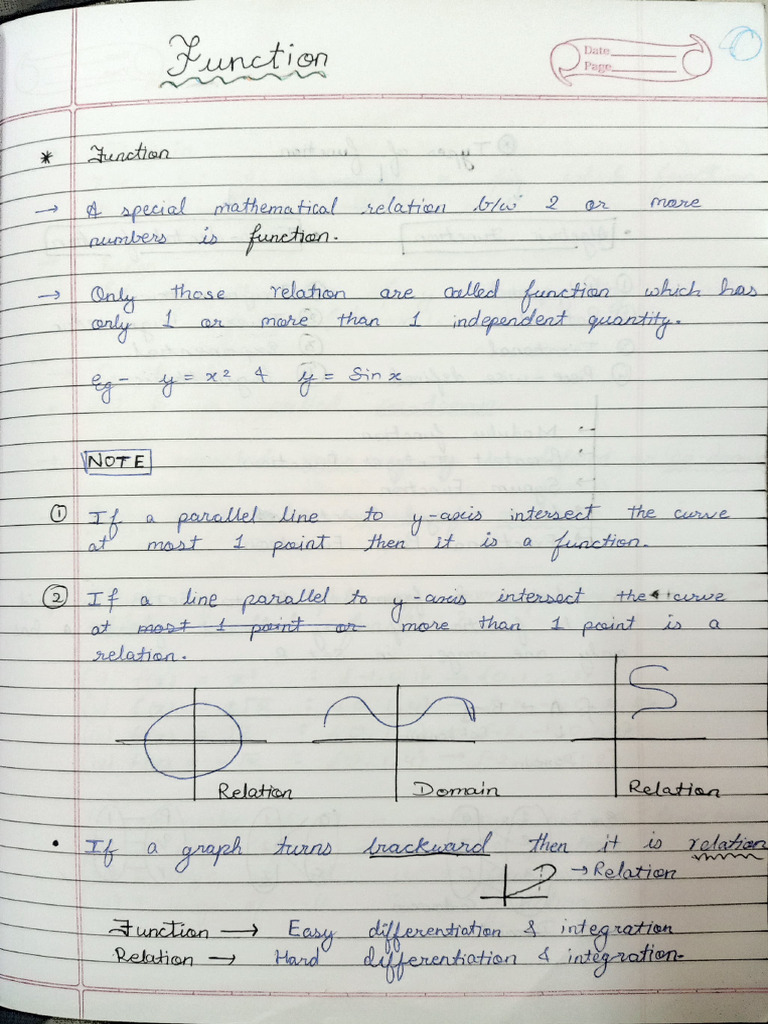 Function
Date
Page
* Function
→ A special mathematical relation b/w 2 or more
numbers is function.
→ Only those relation are called function which has
only 1 or more than 1 independent quantity.
Eg- y = x² & y = Sin x
NOTE
① If a parallel line to y-axis intersect the curve
at most 1 point then it is a function.
② If a line parallel to y-axis intersect the curve
at most 1 point or more than 1 point is a
relation.
Relation Domain Relation
• If a graph turns brackward then it is relation
→ Relation
Function → Easy differentiation & integration
Relation → Hard differentiation & integration.